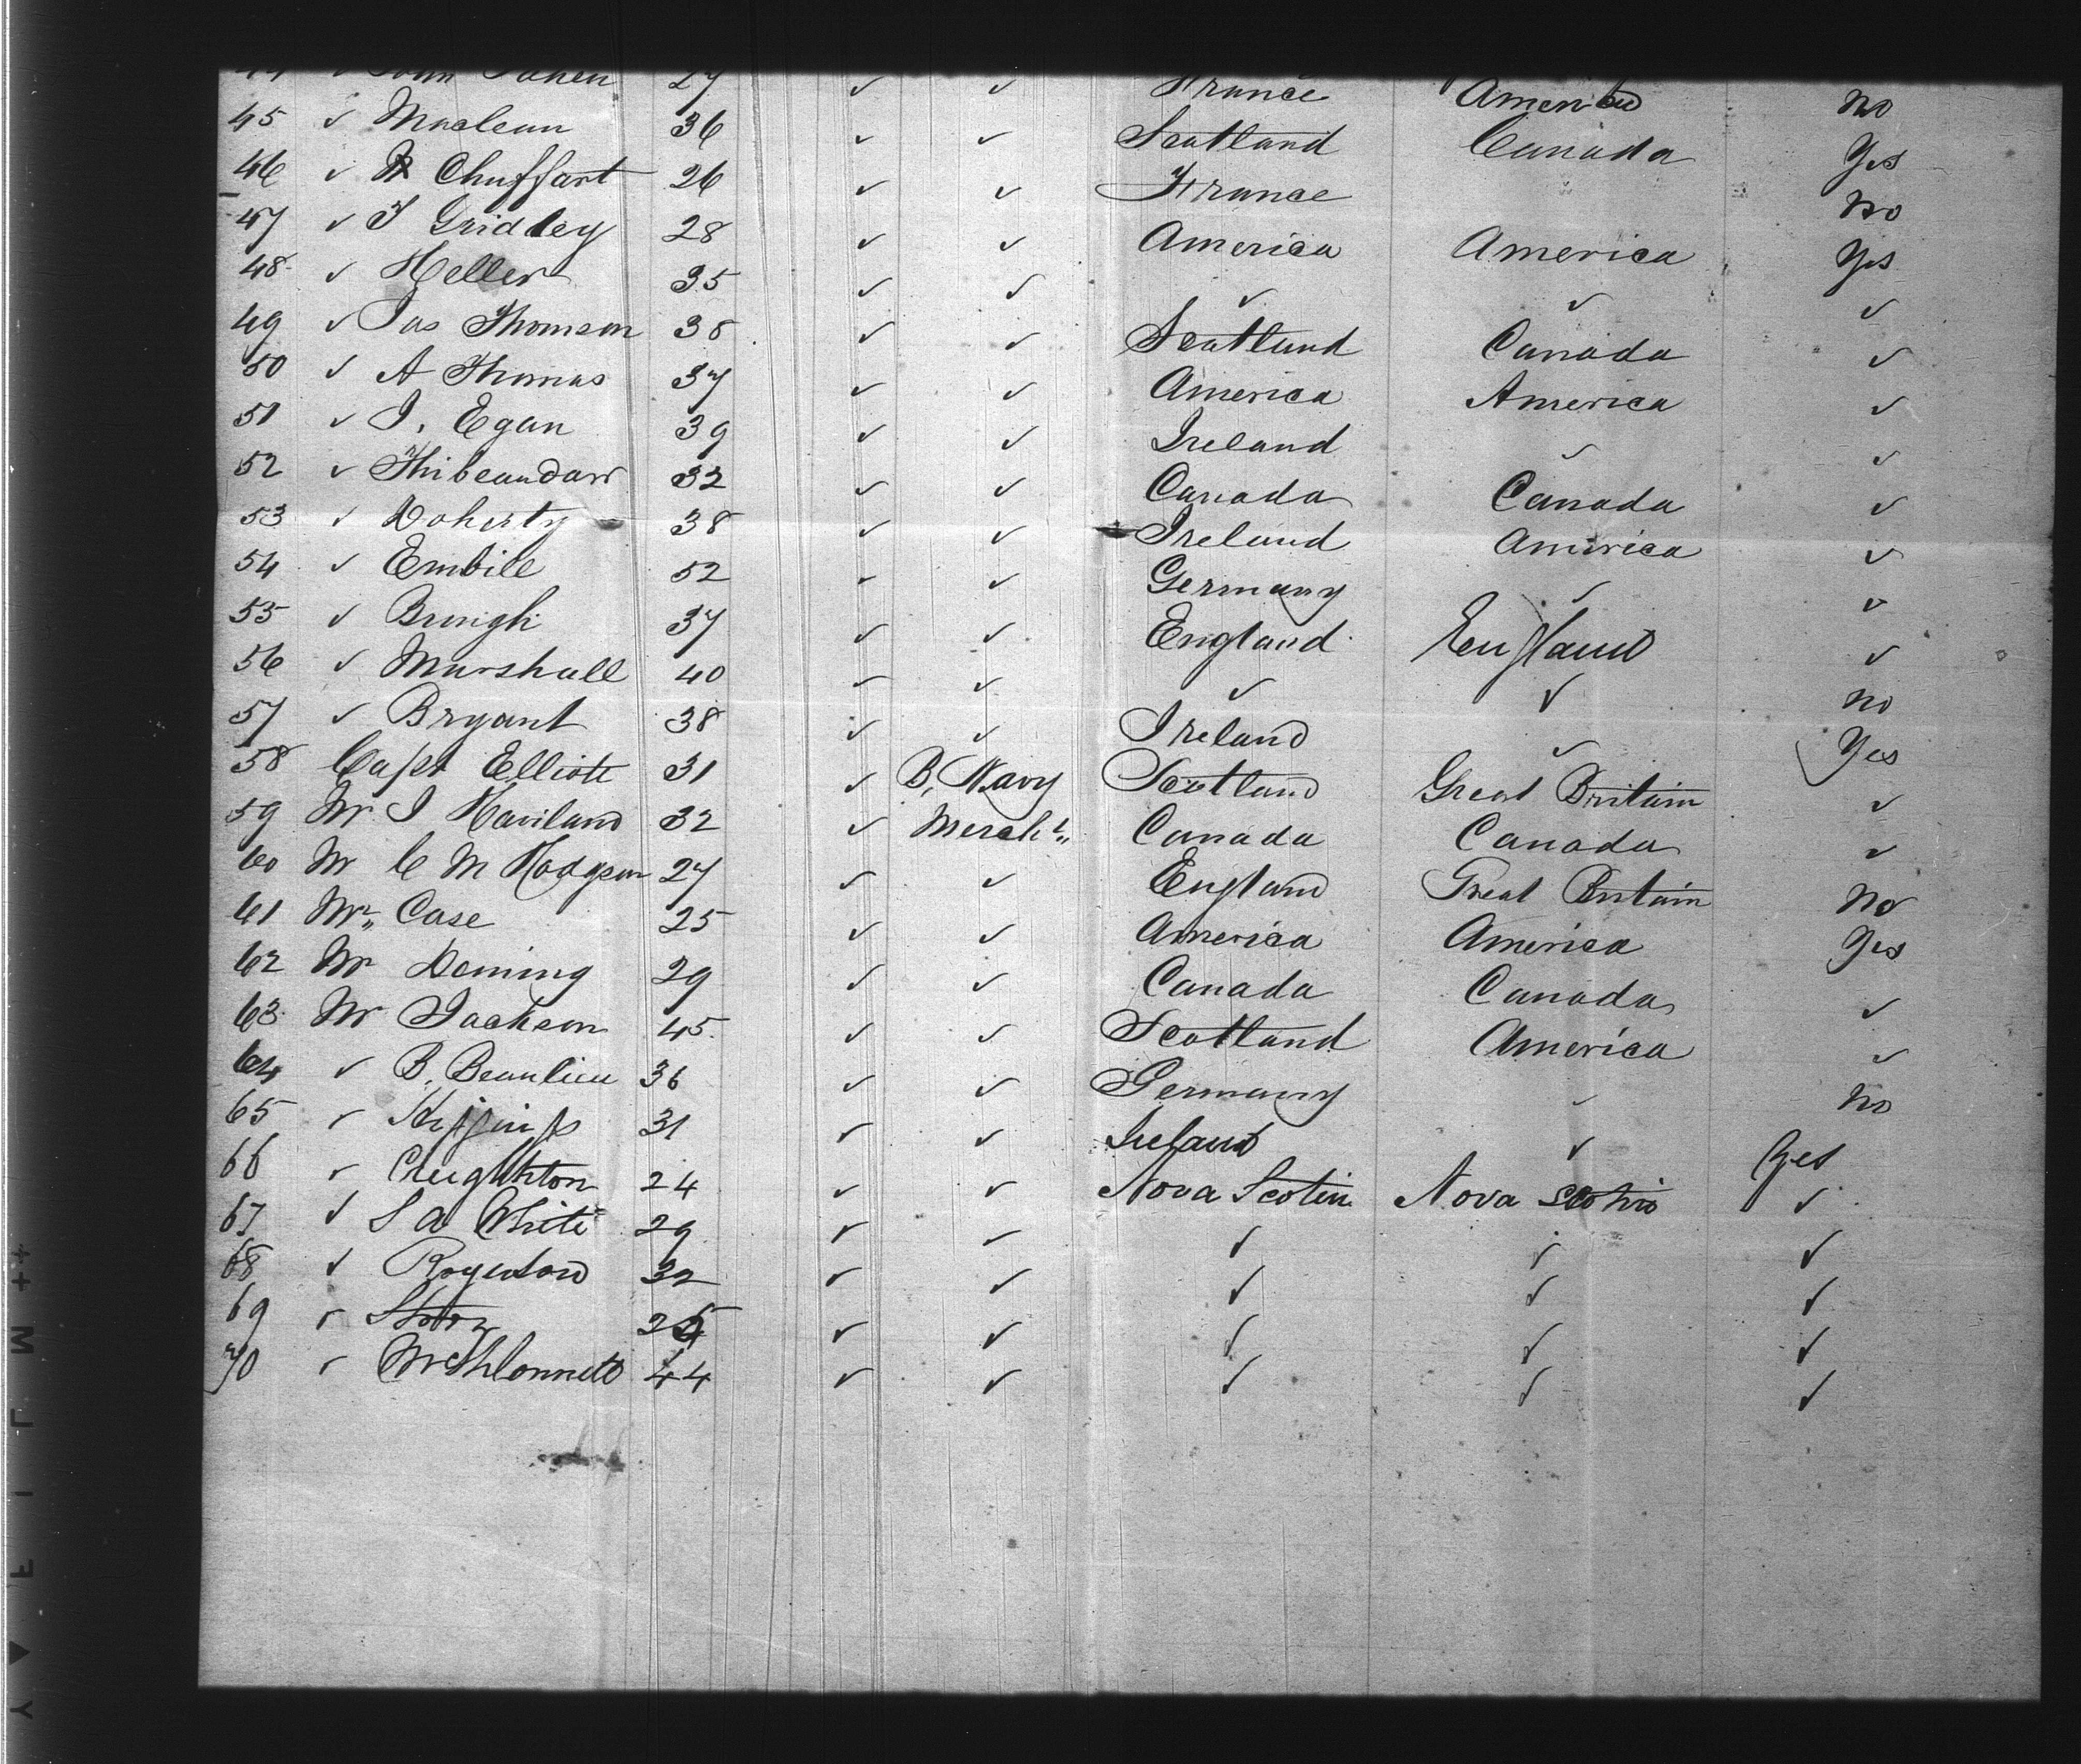 27 ✓ ✓ France America No
45 ✓ Maclean 36 ✓ ✓ Scotland Canada Yes
46 ✓ Chuffart 26 ✓ ✓ France No
47 ✓ J Gridley 28 ✓ ✓ America America Yes
48 ✓ Heller 35 ✓ ✓ ✓ ✓ ✓
49 ✓ Jas Thomson 38 ✓ ✓ Scotland Canada ✓
50 ✓ A Thomas 37 ✓ ✓ America America ✓
51 ✓ J. Egan 39 ✓ ✓ Ireland ✓ ✓
52 ✓ 32 ✓ ✓ Canada Canada ✓
53 ✓ Doherty 38 ✓ ✓ Ireland America ✓
54 ✓ 52 ✓ ✓ Germany ✓ ✓
55 ✓ 37 ✓ ✓ England England ✓
56 ✓ Marshall 40 ✓ ✓ ✓ ✓ No
57 ✓ Bryant 38 ✓ ✓ Ireland ✓ Yes
58 Capt Elliott 31 ✓ B. Navy Scotland Great Britain ✓
59 Mr J Haviland 32 ✓ Mercht. Canada Canada ✓
60 Mr C M Hodgson 27 ✓ ✓ England Great Britain No
61 Mr. Case 25 ✓ ✓ America America Yes
62 Mr Deming 29 ✓ ✓ Canada Canada ✓
63 Mr Jackson 45 ✓ ✓ Scotland America ✓
64 ✓ B. Beaulieu 36 ✓ ✓ Germany ✓ No
65 ✓ 31 ✓ ✓ Ireland ✓ Yes
66 ✓ Creighton 24 ✓ ✓ Nova Scotia Nova Scotia ✓
67 ✓ S A White 29 ✓ ✓ ✓ ✓ ✓
68 ✓ 32 ✓ ✓ ✓ ✓ ✓
69 ✓ ✓ ✓ ✓ ✓ ✓
70 ✓ 44 ✓ ✓ ✓ ✓ ✓